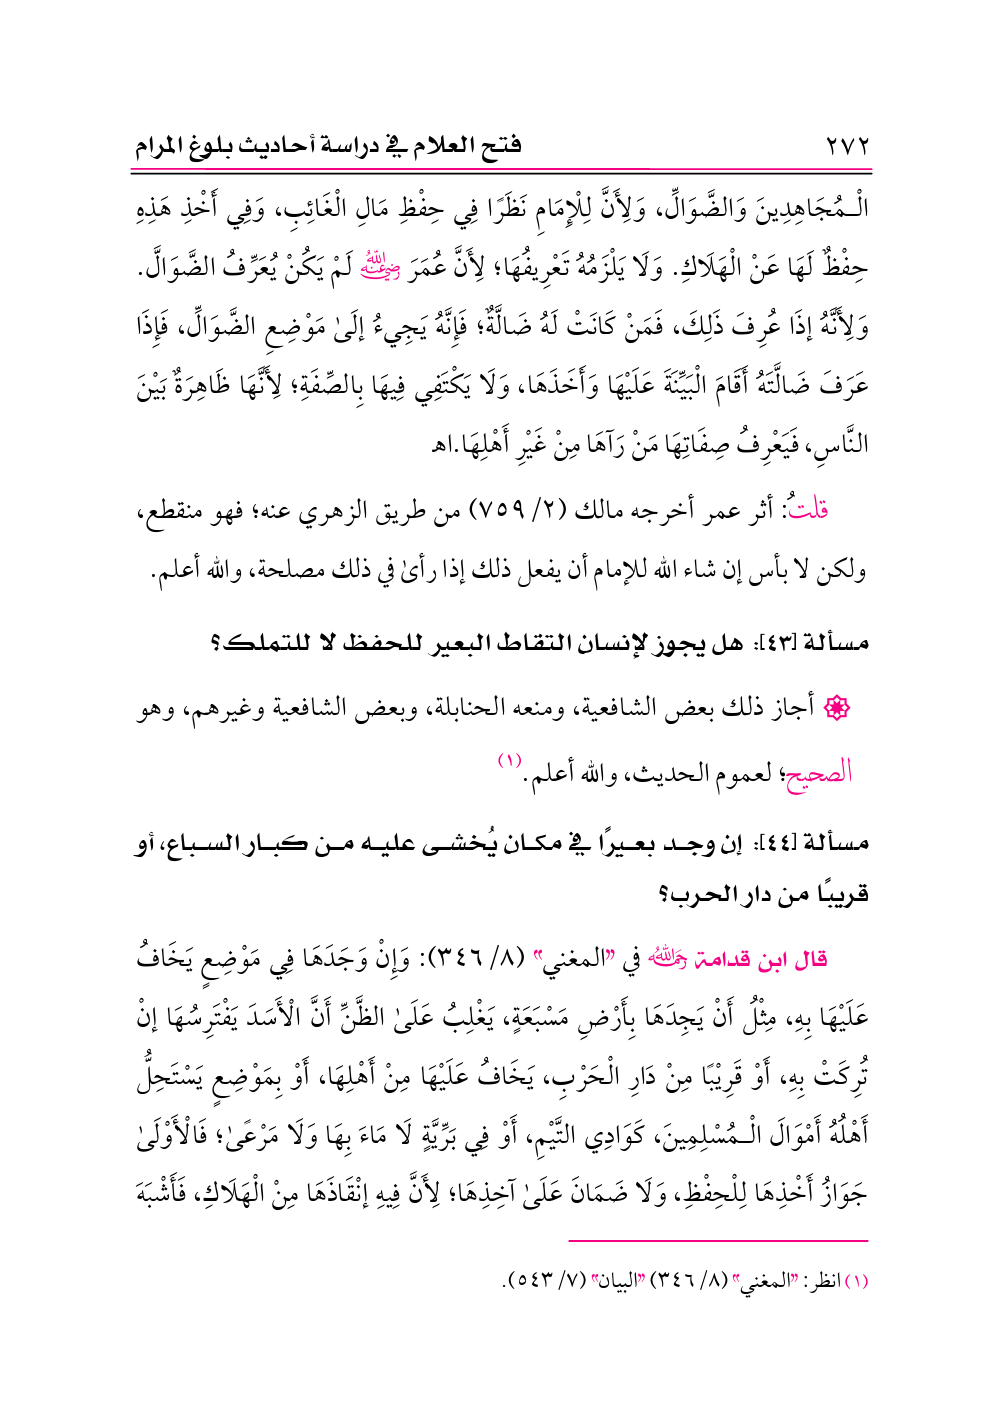 ٢٧٢ فتح العلام في دراسة أحاديث بلوغ المرام
الْـمُجَاهِدِينَ وَالضَّوَالِّ، وَلِأَنَّ لِلْإِمَامِ نَظَرًا فِي حِفْظِ مَالِ الْغَائِبِ، وَفِي أَخْذِ هَذِهِ
حِفْظٌ لَهَا عَنْ الْهَلَاكِ. وَلَا يَلْزَمُهُ تَعْرِيفُهَا؛ لِأَنَّ عُمَرَ رضي الله عنه لَمْ يَكُنْ يُعَرِّفُ الضَّوَالَّ.
وَلِأَنَّهُ إذَا عُرِفَ ذَلِكَ، فَمَنْ كَانَتْ لَهُ ضَالَّةٌ؛ فَإِنَّهُ يَجِيءُ إلَىٰ مَوْضِعِ الضَّوَالِّ، فَإِذَا
عَرَفَ ضَالَّتَهُ أَقَامَ الْبَيِّنَةَ عَلَيْهَا وَأَخَذَهَا، وَلَا يَكْتَفِي فِيهَا بِالصِّفَةِ؛ لِأَنَّهَا ظَاهِرَةٌ بَيْنَ
النَّاسِ، فَيَعْرِفُ صِفَاتِهَا مَنْ رَآهَا مِنْ غَيْرِ أَهْلِهَا.اهـ
قلتُ: أثر عمر أخرجه مالك (٢/ ٧٥٩) من طريق الزهري عنه؛ فهو منقطع،
ولكن لا بأس إن شاء الله للإمام أن يفعل ذلك إذا رأىٰ في ذلك مصلحة، والله أعلم.
مسألة [٤٣]: هل يجوز لإنسان التقاط البعير للحفظ لا للتملك؟
أجاز ذلك بعض الشافعية، ومنعه الحنابلة، وبعض الشافعية وغيرهم، وهو
الصحيح؛ لعموم الحديث، والله أعلم.(١)
مسألة [٤٤]: إن وجـد بعـيرًا في مكـان يُخشـى عليـه مـن كبـار السـباع، أو
قريبًا من دار الحرب؟
قال ابن قدامة رحمه الله في "المغني" (٨/ ٣٤٦): وَإِنْ وَجَدَهَا فِي مَوْضِعٍ يَخَافُ
عَلَيْهَا بِهِ، مِثْلُ أَنْ يَجِدَهَا بِأَرْضِ مَسْبَعَةٍ، يَغْلِبُ عَلَىٰ الظَّنِّ أَنَّ الْأَسَدَ يَفْتَرِسُهَا إنْ
تُرِكَتْ بِهِ، أَوْ قَرِيْبًا مِنْ دَارِ الْحَرْبِ، يَخَافُ عَلَيْهَا مِنْ أَهْلِهَا، أَوْ بِمَوْضِعٍ يَسْتَحِلُّ
أَهْلُهُ أَمْوَالَ الْـمُسْلِمِينَ، كَوَادِي التَّيْمِ، أَوْ فِي بَرِّيَّةٍ لَا مَاءَ بِهَا وَلَا مَرْعًىٰ؛ فَالْأَوْلَىٰ
جَوَازُ أَخْذِهَا لِلْحِفْظِ، وَلَا ضَمَانَ عَلَىٰ آخِذِهَا؛ لِأَنَّ فِيهِ إنْقَاذَهَا مِنْ الْهَلَاكِ، فَأَشْبَهَ
(١) انظر: "المغني" (٨/ ٣٤٦) "البيان" (٧/ ٥٤٣).